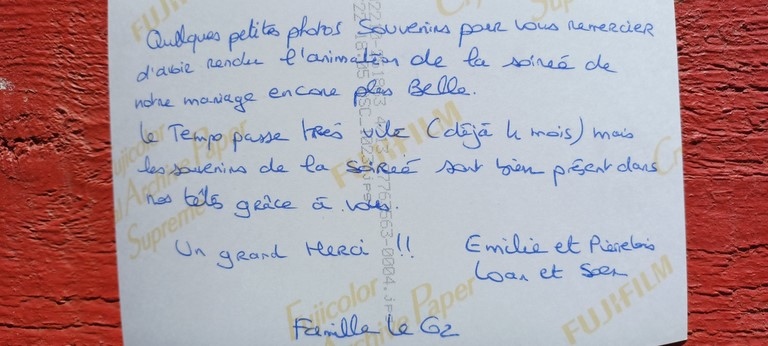 Quelques petites photos souvenirs pour vous remercier
d'avoir rendu l'animation de la soirée de
notre mariage encore plus Belle.
Le Temps passe très vite (déjà 4 mois) mais
les souvenirs de la soirée sont bien présent dans
nos têtes grâce à vous.
Un grand Merci !!
Emilie et Pierrelois
Loan et Soen
Famille Le Gz
Fujicolor
Crystal Archive Paper
Supreme
FUJIFILM